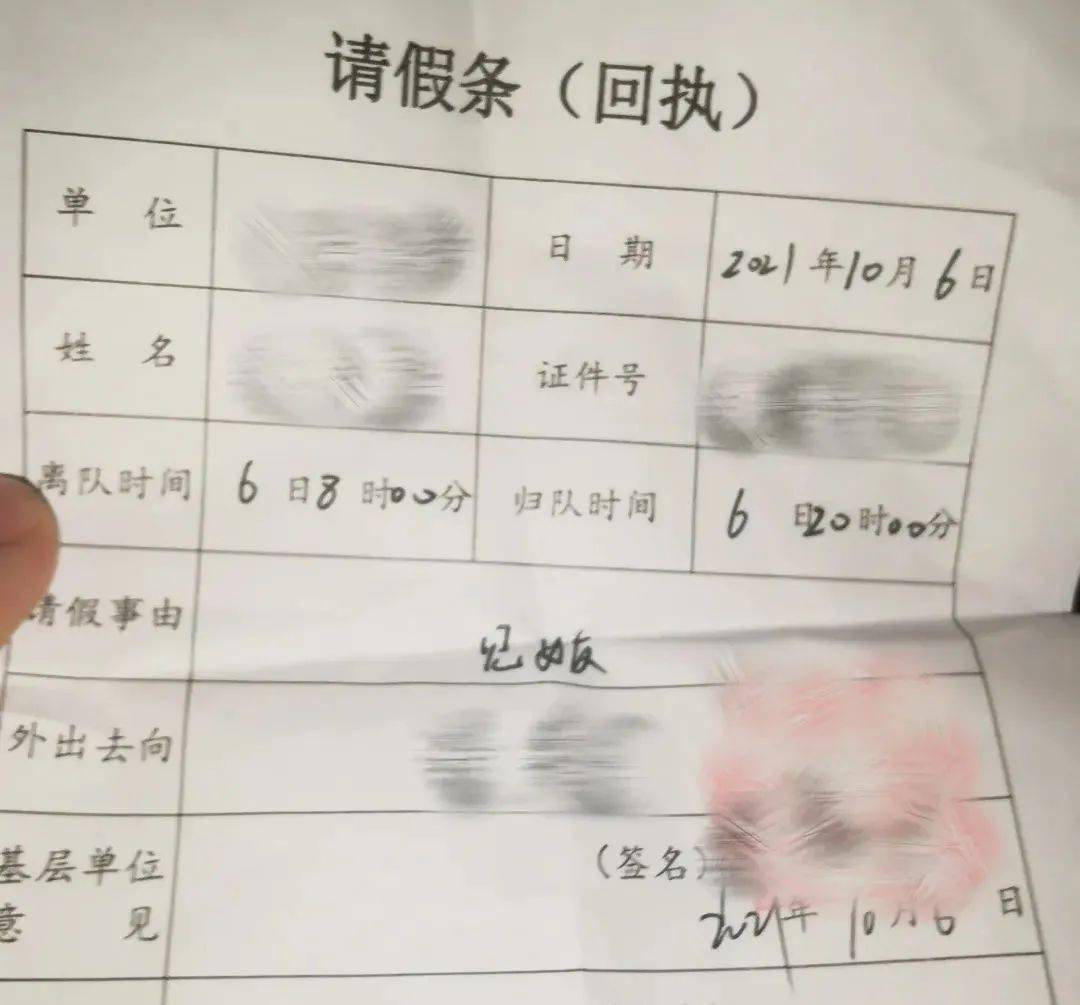 请假条（回执）
单 位 日 期 2021年10月6日
姓 名 证件号
离队时间 6日8时00分 归队时间 6日20时00分
请假事由 见女友
外出去向
基层单位 （签名）
意 见 2021年10月6日